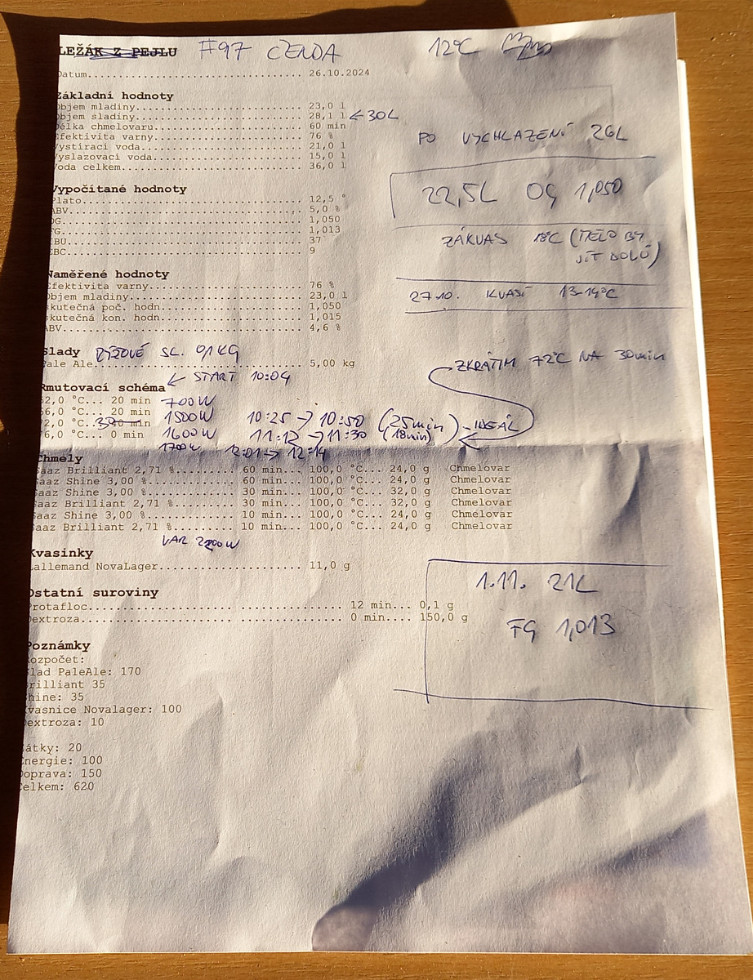 LEŽÁK Z PEJLU #97 ČENDA 12°C
Datum 26.10.2024
Základní hodnoty
Objem mladiny 23,0 l
Objem sladiny 28,1 l ← 30L
Délka chmelovaru 60 min
Efektivita varny 76 %
Vystírací voda 21,0 l
Vyslazovací voda 15,0 l
Voda celkem 36,0 l
PO VYCHLAZENÍ 26L
22,5L OG 1,050
ZÁKVAS 18C (MĚLO BY JÍT DOLŮ)
27.10. KVASÍ 13-14°C
Vypočítané hodnoty
Plato 12,5 °
ABV 5,0 %
OG 1,050
FG 1,013
IBU 37
EBC 9
Naměřené hodnoty
Efektivita varny 76 %
Objem mladiny 23,0 l
Skutečná poč. hodn. 1,050
Skutečná kon. hodn. 1,015
ABV 4,6 %
Slady RÝŽOVÉ SL. 0,1 KG
Pale Ale 5,00 kg
ZKRÁTIM 72°C NA 30min
Rmutovací schéma ← START 10:04
52,0 °C... 20 min 700W
66,0 °C... 20 min 1500W 10:25 → 10:50 (25min) - IDEÁL
72,0 °C... 30 min 1600W 11:12 → 11:30 (18min)
76,0 °C... 0 min 1700W 12:01 → 12:14
Chmely
Saaz Brilliant 2,71 % 60 min... 100,0 °C... 24,0 g Chmelovar
Saaz Shine 3,00 % 60 min... 100,0 °C... 24,0 g Chmelovar
Saaz Shine 3,00 % 30 min... 100,0 °C... 32,0 g Chmelovar
Saaz Brilliant 2,71 % 30 min... 100,0 °C... 32,0 g Chmelovar
Saaz Shine 3,00 % 10 min... 100,0 °C... 24,0 g Chmelovar
Saaz Brilliant 2,71 % 10 min... 100,0 °C... 24,0 g Chmelovar
VAR 2200W
Kvasinky
Lallemand NovaLager 11,0 g
Ostatní suroviny
Protafloc 12 min... 0,1 g
Dextroza 0 min.... 150,0 g
1.11. 21L
FG 1,013
Poznámky
Rozpočet:
Slad PaleAle: 170
Brilliant 35
Shine: 35
Kvasnice Novalager: 100
Dextroza: 10
Zátky: 20
Energie: 100
Doprava: 150
Celkem: 620